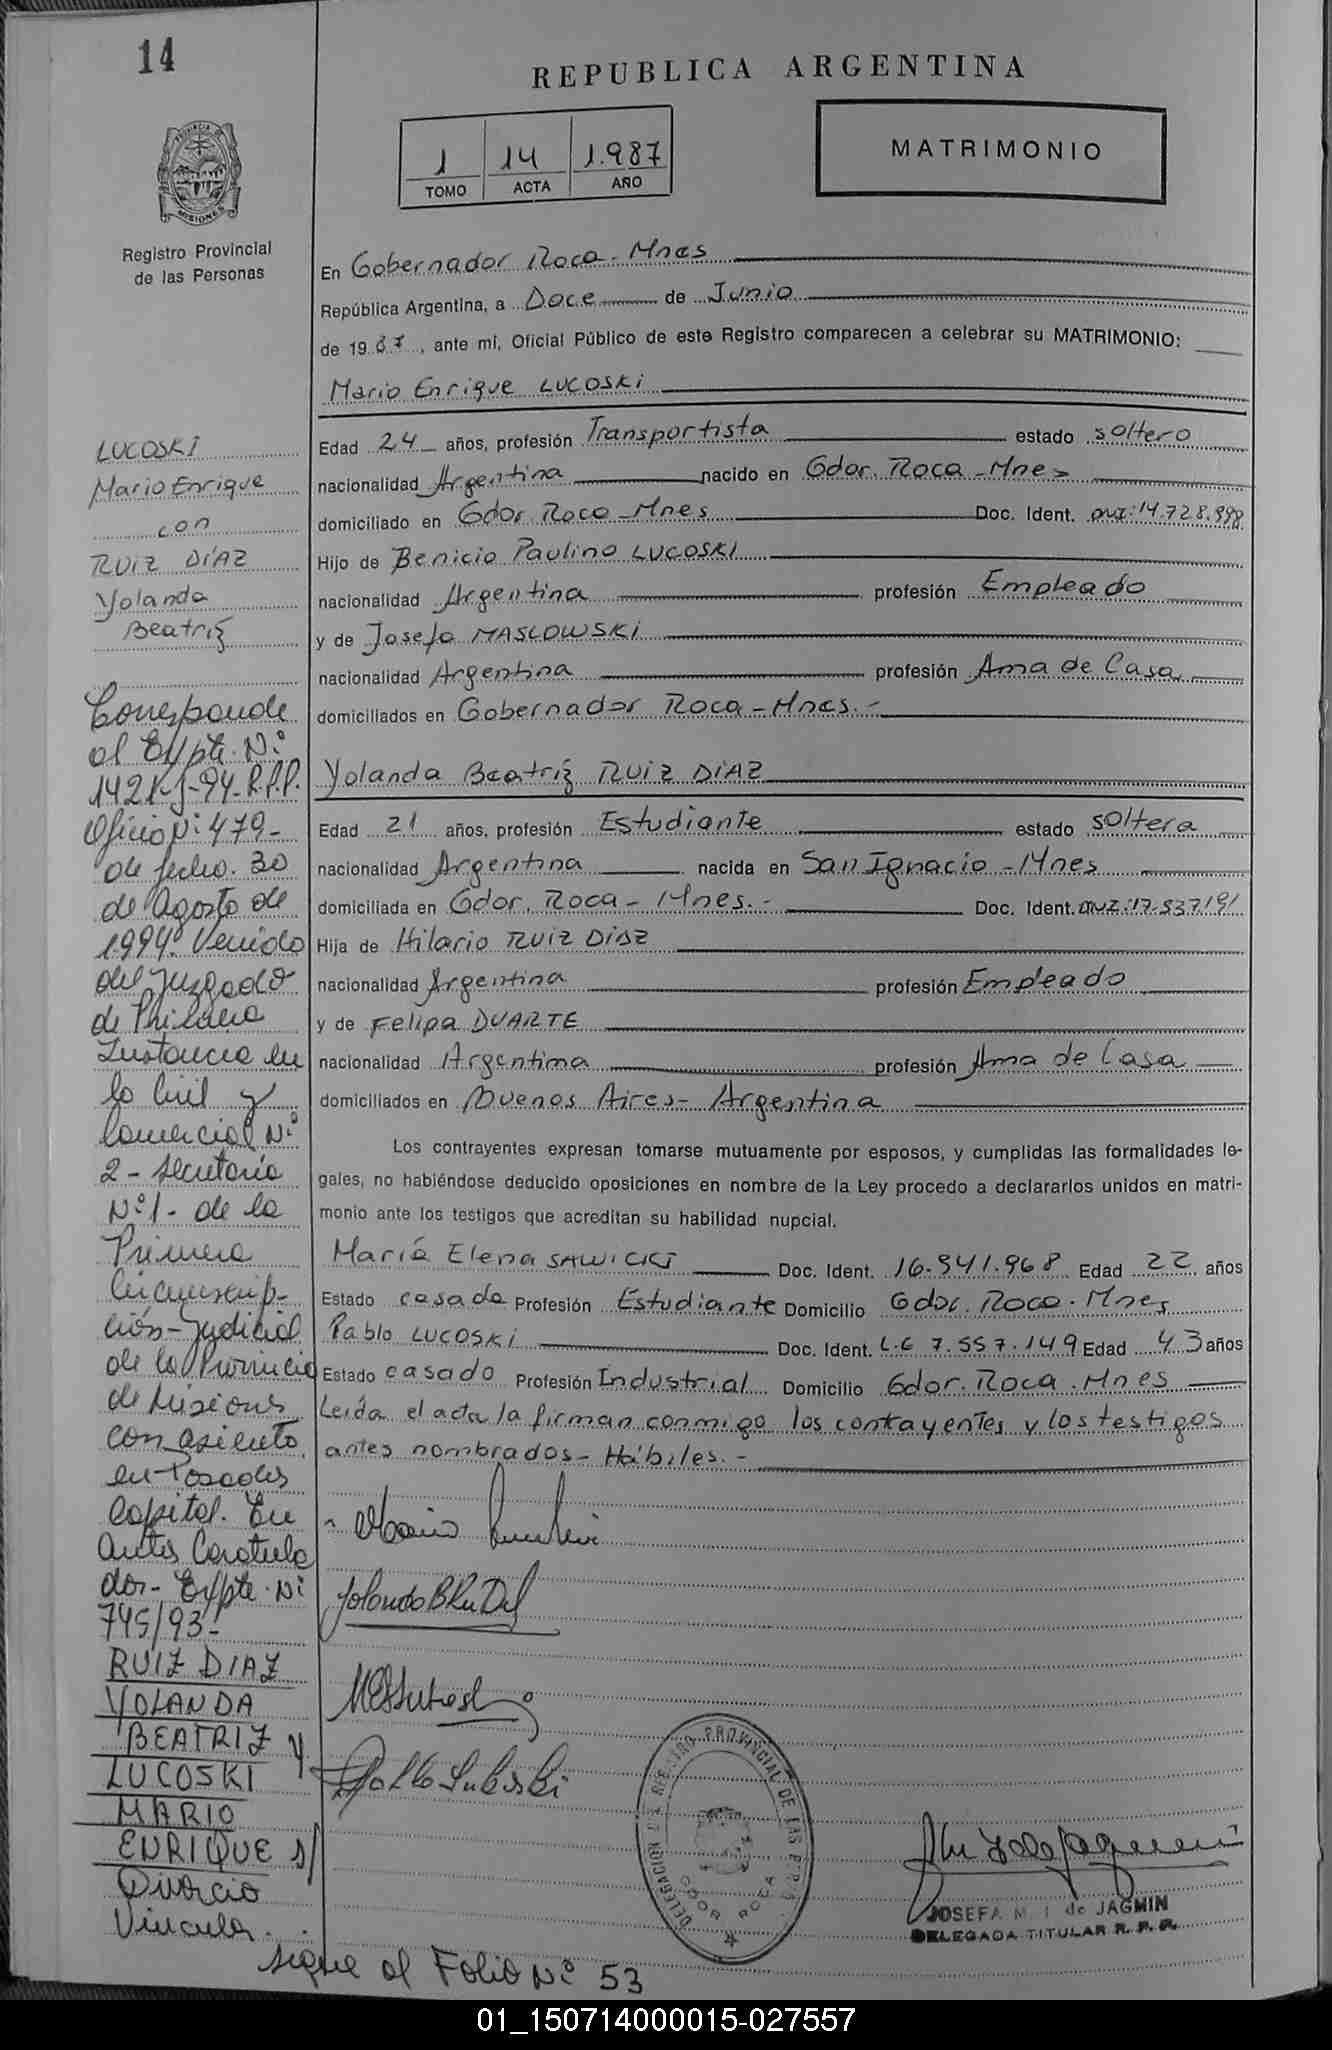 14
REPUBLICA ARGENTINA
1 14 1.987
TOMO ACTA AÑO
MATRIMONIO
PROVINCIA DE
MISIONES
Registro Provincial
de las Personas
En Gobernador Roca - Mnes
República Argentina, a Doce de Junio
de 19 87, ante mí, Oficial Público de este Registro comparecen a celebrar su MATRIMONIO:
Mario Enrique LUCOSKI
Edad 24 años, profesión Transportista estado soltero
nacionalidad Argentina nacido en Gdor. Roca - Mnes
domiciliado en Gdor. Roca - Mnes Doc. Ident. DNI: 14.728.998
Hijo de Benicio Paulino LUCOSKI
nacionalidad Argentina profesión Empleado
y de Josefa MASLOWSKI
nacionalidad Argentina profesión Ama de Casa
domiciliados en Gobernador Roca - Mnes. -
Yolanda Beatriz RUIZ DIAZ
Edad 21 años, profesión Estudiante estado soltera
nacionalidad Argentina nacida en San Ignacio - Mnes
domiciliada en Gdor. Roca - Mnes. - Doc. Ident.
Hija de Hilario RUIZ DIAZ
nacionalidad Argentina profesión Empleado
y de Felipa DUARTE
nacionalidad Argentina profesión Ama de Casa
domiciliados en Buenos Aires - Argentina
Los contrayentes expresan tomarse mutuamente por esposos, y cumplidas las formalidades le-
gales, no habiéndose deducido oposiciones en nombre de la Ley procedo a declararlos unidos en matri-
monio ante los testigos que acreditan su habilidad nupcial.
María Elena SAWICKI Doc. Ident. 16.941.968 Edad 22 años
Estado casada Profesión Estudiante Domicilio Gdor. Roca. Mnes
Pablo LUCOSKI Doc. Ident. L.E 7.557.149 Edad 43 años
Estado casado Profesión Industrial Domicilio Gdor. Roca. Mnes
Leída el acta la firman conmigo los contrayentes y los testigos
antes nombrados - Hábiles. -
LUCOSKI
Mario Enrique
con
RUIZ DIAZ
Yolanda
Beatriz
Corresponde
al Expte. Nº
1421-J-94-R.P.P.
Oficio Nº 479-
de fecha. 30
de Agosto de
1994. Venido
del Juzgado
de Primera
Instancia en
lo Civil y
Comercial Nº
2 - Secretaría
Nº 1 - de la
Primera
Circunscrip-
ción - Judicial
de la Provincia
de Misiones
con asiento
en Posadas
Capital. En
Autos Caratula
dos - Expte. Nº
745/93.
RUIZ DIAZ
YOLANDA
BEATRIZ y
LUCOSKI
MARIO
ENRIQUE s/
Divorcio
Vincular.
sigue al Folio Nº 53
Pablo Lukoski
DELEGACION REGISTRO PROVINCIAL DE LAS PERS.
GDOR ROCA
JOSEFA M. de JAGMIN
DELEGADA TITULAR R. P. P.
01_150714000015-027557